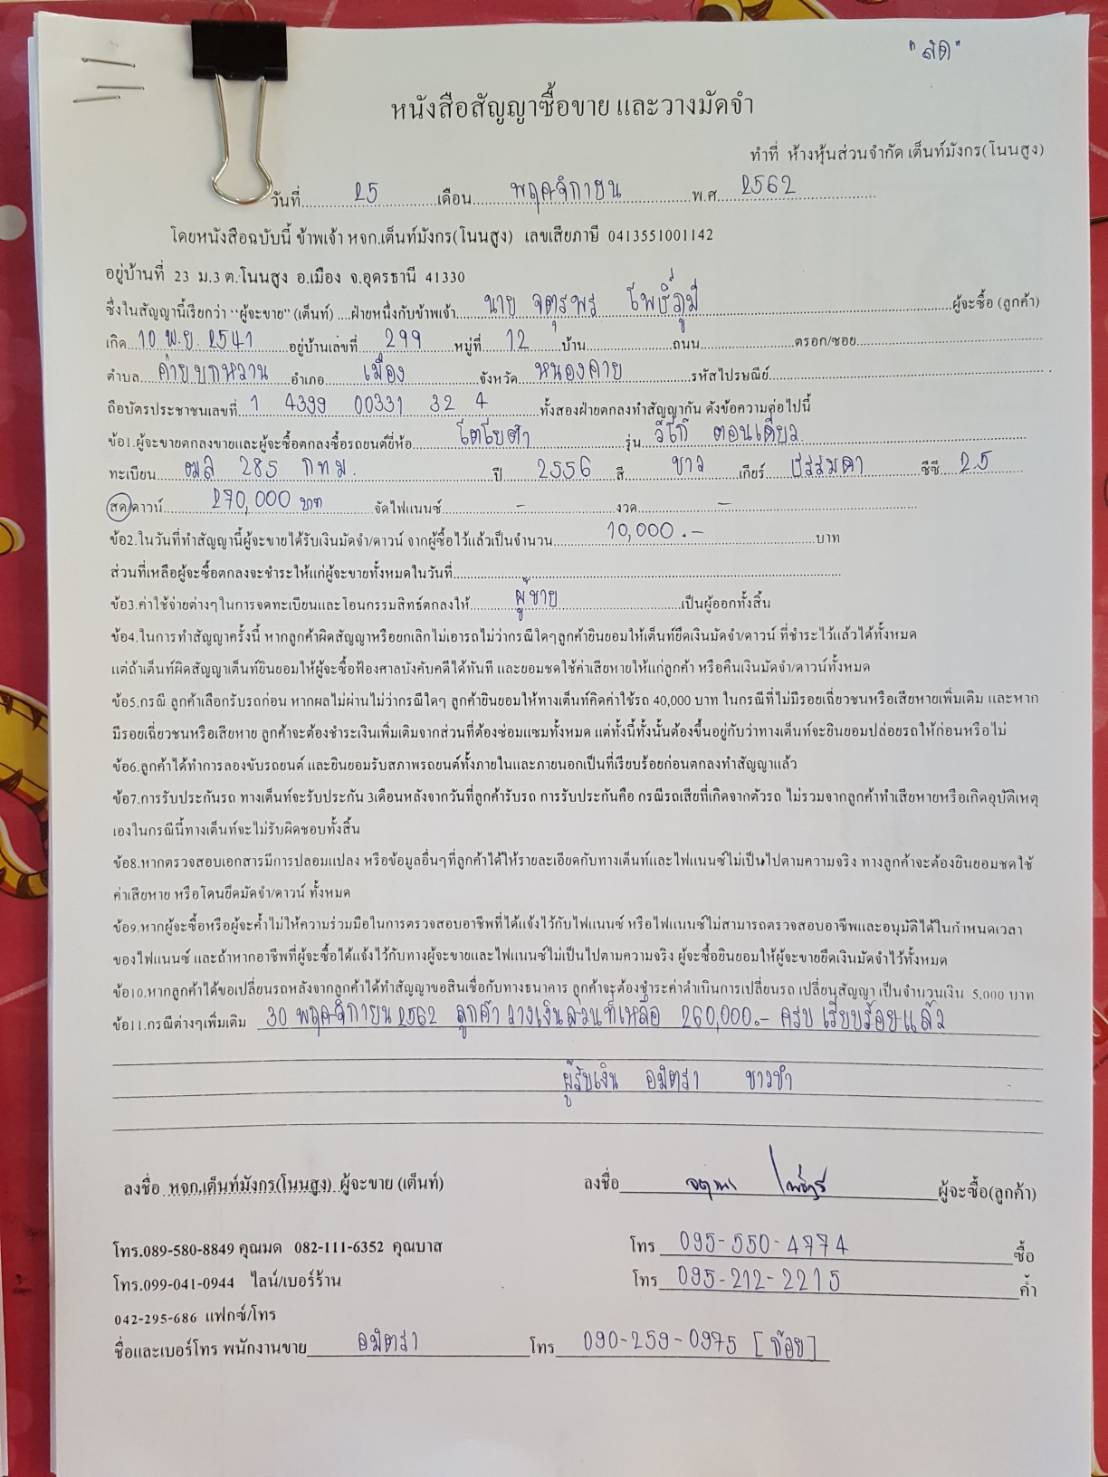 "สด"
หนังสือสัญญาซื้อขาย และวางมัดจำ
ทำที่ ห้างหุ้นส่วนจำกัด เต็นท์มังกร(โนนสูง)
วันที่ 25 เดือน พฤศจิกายน พ.ศ. 2562
โดยหนังสือฉบับนี้ ข้าพเจ้า หจก.เต็นท์มังกร(โนนสูง) เลขเสียภาษี 0413551001142
อยู่บ้านที่ 23 ม.3 ต.โนนสูง อ.เมือง จ.อุดรธานี 41330
ซึ่งในสัญญานี้เรียกว่า "ผู้จะขาย" (เต็นท์) ....ฝ่ายหนึ่งกับข้าพเจ้า นาย จตุรพร โพธิ์ภูมี ผู้จะซื้อ (ลูกค้า)
เกิด 10 พ.ย. 2541 อยู่บ้านเลขที่ 299 หมู่ที่ 12 บ้าน ถนน ตรอก/ซอย
ตำบล ค่ายบกหวาน อำเภอ เมือง จังหวัด หนองคาย รหัสไปรษณีย์
ถือบัตรประชาชนเลขที่ 1 4399 00331 32 4 ทั้งสองฝ่ายตกลงทำสัญญากัน ดังข้อความต่อไปนี้
ข้อ1.ผู้จะขายตกลงขายและผู้จะซื้อตกลงซื้อรถยนต์ยี่ห้อ โตโยต้า รุ่น วีโก้ ตอนเดียว
ทะเบียน ฒล 285 กทม. ปี 2556 สี ขาว เกียร์ ธรรมดา ซีซี 2.5
สด/ดาวน์ 270,000 บาท จัดไฟแนนซ์ - งวด -
ข้อ2.ในวันที่ทำสัญญานี้ผู้จะขายได้รับเงินมัดจำ/ดาวน์ จากผู้ซื้อไว้แล้วเป็นจำนวน 10,000.- บาท
ส่วนที่เหลือผู้จะซื้อตกลงจะชำระให้แก่ผู้จะขายทั้งหมดในวันที่
ข้อ3.ค่าใช้จ่ายต่างๆในการจดทะเบียนและโอนกรรมสิทธ์ตกลงให้ ผู้ขาย เป็นผู้ออกทั้งสิ้น
ข้อ4.ในการทำสัญญาครั้งนี้ หากลูกค้าผิดสัญญาหรือยกเลิกไม่เอารถไม่ว่ากรณีใดๆลูกค้ายินยอมให้เต็นท์ยึดเงินมัดจำ/ดาวน์ ที่ชำระไว้แล้วได้ทั้งหมด
แต่ถ้าเต็นท์ผิดสัญญาเต็นท์ยินยอมให้ผู้จะซื้อฟ้องศาลบังคับคดีได้ทันที และยอมชดใช้ค่าเสียหายให้แก่ลูกค้า หรือคืนเงินมัดจำ/ดาวน์ทั้งหมด
ข้อ5.กรณี ลูกค้าเลือกรับรถก่อน หากผลไม่ผ่านไม่ว่ากรณีใดๆ ลูกค้ายินยอมให้ทางเต็นท์คิดค่าใช้รถ 40,000 บาท ในกรณีที่ไม่มีรอยเฉี่ยวชนหรือเสียหายเพิ่มเติม และหาก
มีรอยเฉี่ยวชนหรือเสียหาย ลูกค้าจะต้องชำระเงินเพิ่มเติมจากส่วนที่ต้องซ่อมแซมทั้งหมด แต่ทั้งนี้ทั้งนั้นต้องขึ้นอยู่กับว่าทางเต็นท์จะยินยอมปล่อยรถให้ก่อนหรือไม่
ข้อ6.ลูกค้าได้ทำการลองขับรถยนต์ และยินยอมรับสภาพรถยนต์ทั้งภายในและภายนอกเป็นที่เรียบร้อยก่อนตกลงทำสัญญาแล้ว
ข้อ7.การรับประกันรถ ทางเต็นท์จะรับประกัน 3เดือนหลังจากวันที่ลูกค้ารับรถ การรับประกันคือ กรณีรถเสียที่เกิดจากตัวรถ ไม่รวมจากลูกค้าทำเสียหายหรือเกิดอุบัติเหตุ
เองในกรณีนี้ทางเต็นท์จะไม่รับผิดชอบทั้งสิ้น
ข้อ8.หากตรวจสอบเอกสารมีการปลอมแปลง หรือข้อมูลอื่นๆที่ลูกค้าได้ให้รายละเอียดกับทางเต็นท์และไฟแนนซ์ไม่เป็นไปตามความจริง ทางลูกค้าจะต้องยินยอมชดใช้
ค่าเสียหาย หรือโดนยึดมัดจำ/ดาวน์ ทั้งหมด
ข้อ9.หากผู้จะซื้อหรือผู้จะค้ำไม่ให้ความร่วมมือในการตรวจสอบอาชีพที่ได้แจ้งไว้กับไฟแนนซ์ หรือไฟแนนซ์ไม่สามารถตรวจสอบอาชีพและอนุมัติได้ในกำหนดเวลา
ของไฟแนนซ์ และถ้าหากอาชีพที่ผู้จะซื้อได้แจ้งไว้กับทางผู้จะขายและไฟแนนซ์ไม่เป็นไปตามความจริง ผู้จะซื้อยินยอมให้ผู้จะขายยึดเงินมัดจำไว้ทั้งหมด
ข้อ10.หากลูกค้าได้ขอเปลี่ยนรถหลังจากลูกค้าได้ทำสัญญาขอสินเชื่อกับทางธนาคาร ลูกค้าจะต้องชำระค่าดำเนินการเปลี่ยนรถ เปลี่ยนสัญญา เป็นจำนวนเงิน 5,000 บาท
ข้อ11.กรณีต่างๆเพิ่มเติม 30 พฤศจิกายน 2562 ลูกค้า วางเงินส่วนที่เหลือ 260,000.- ครบ เรียบร้อยแล้ว
ผู้รับเงิน อมิตรา ขาวขำ
ลงชื่อ หจก.เต็นท์มังกร(โนนสูง) ผู้จะขาย (เต็นท์) ลงชื่อ ผู้จะซื้อ(ลูกค้า)
โทร.089-580-8849 คุณมด 082-111-6352 คุณบาส โทร 095-550-4774 ซื้อ
โทร.099-041-0944 ไลน์/เบอร์ร้าน โทร 095-212-2215 ค้ำ
042-295-686 แฟกซ์/โทร
ชื่อและเบอร์โทร พนักงานขาย อมิตรา โทร 090-259-0975 [ก้อย]